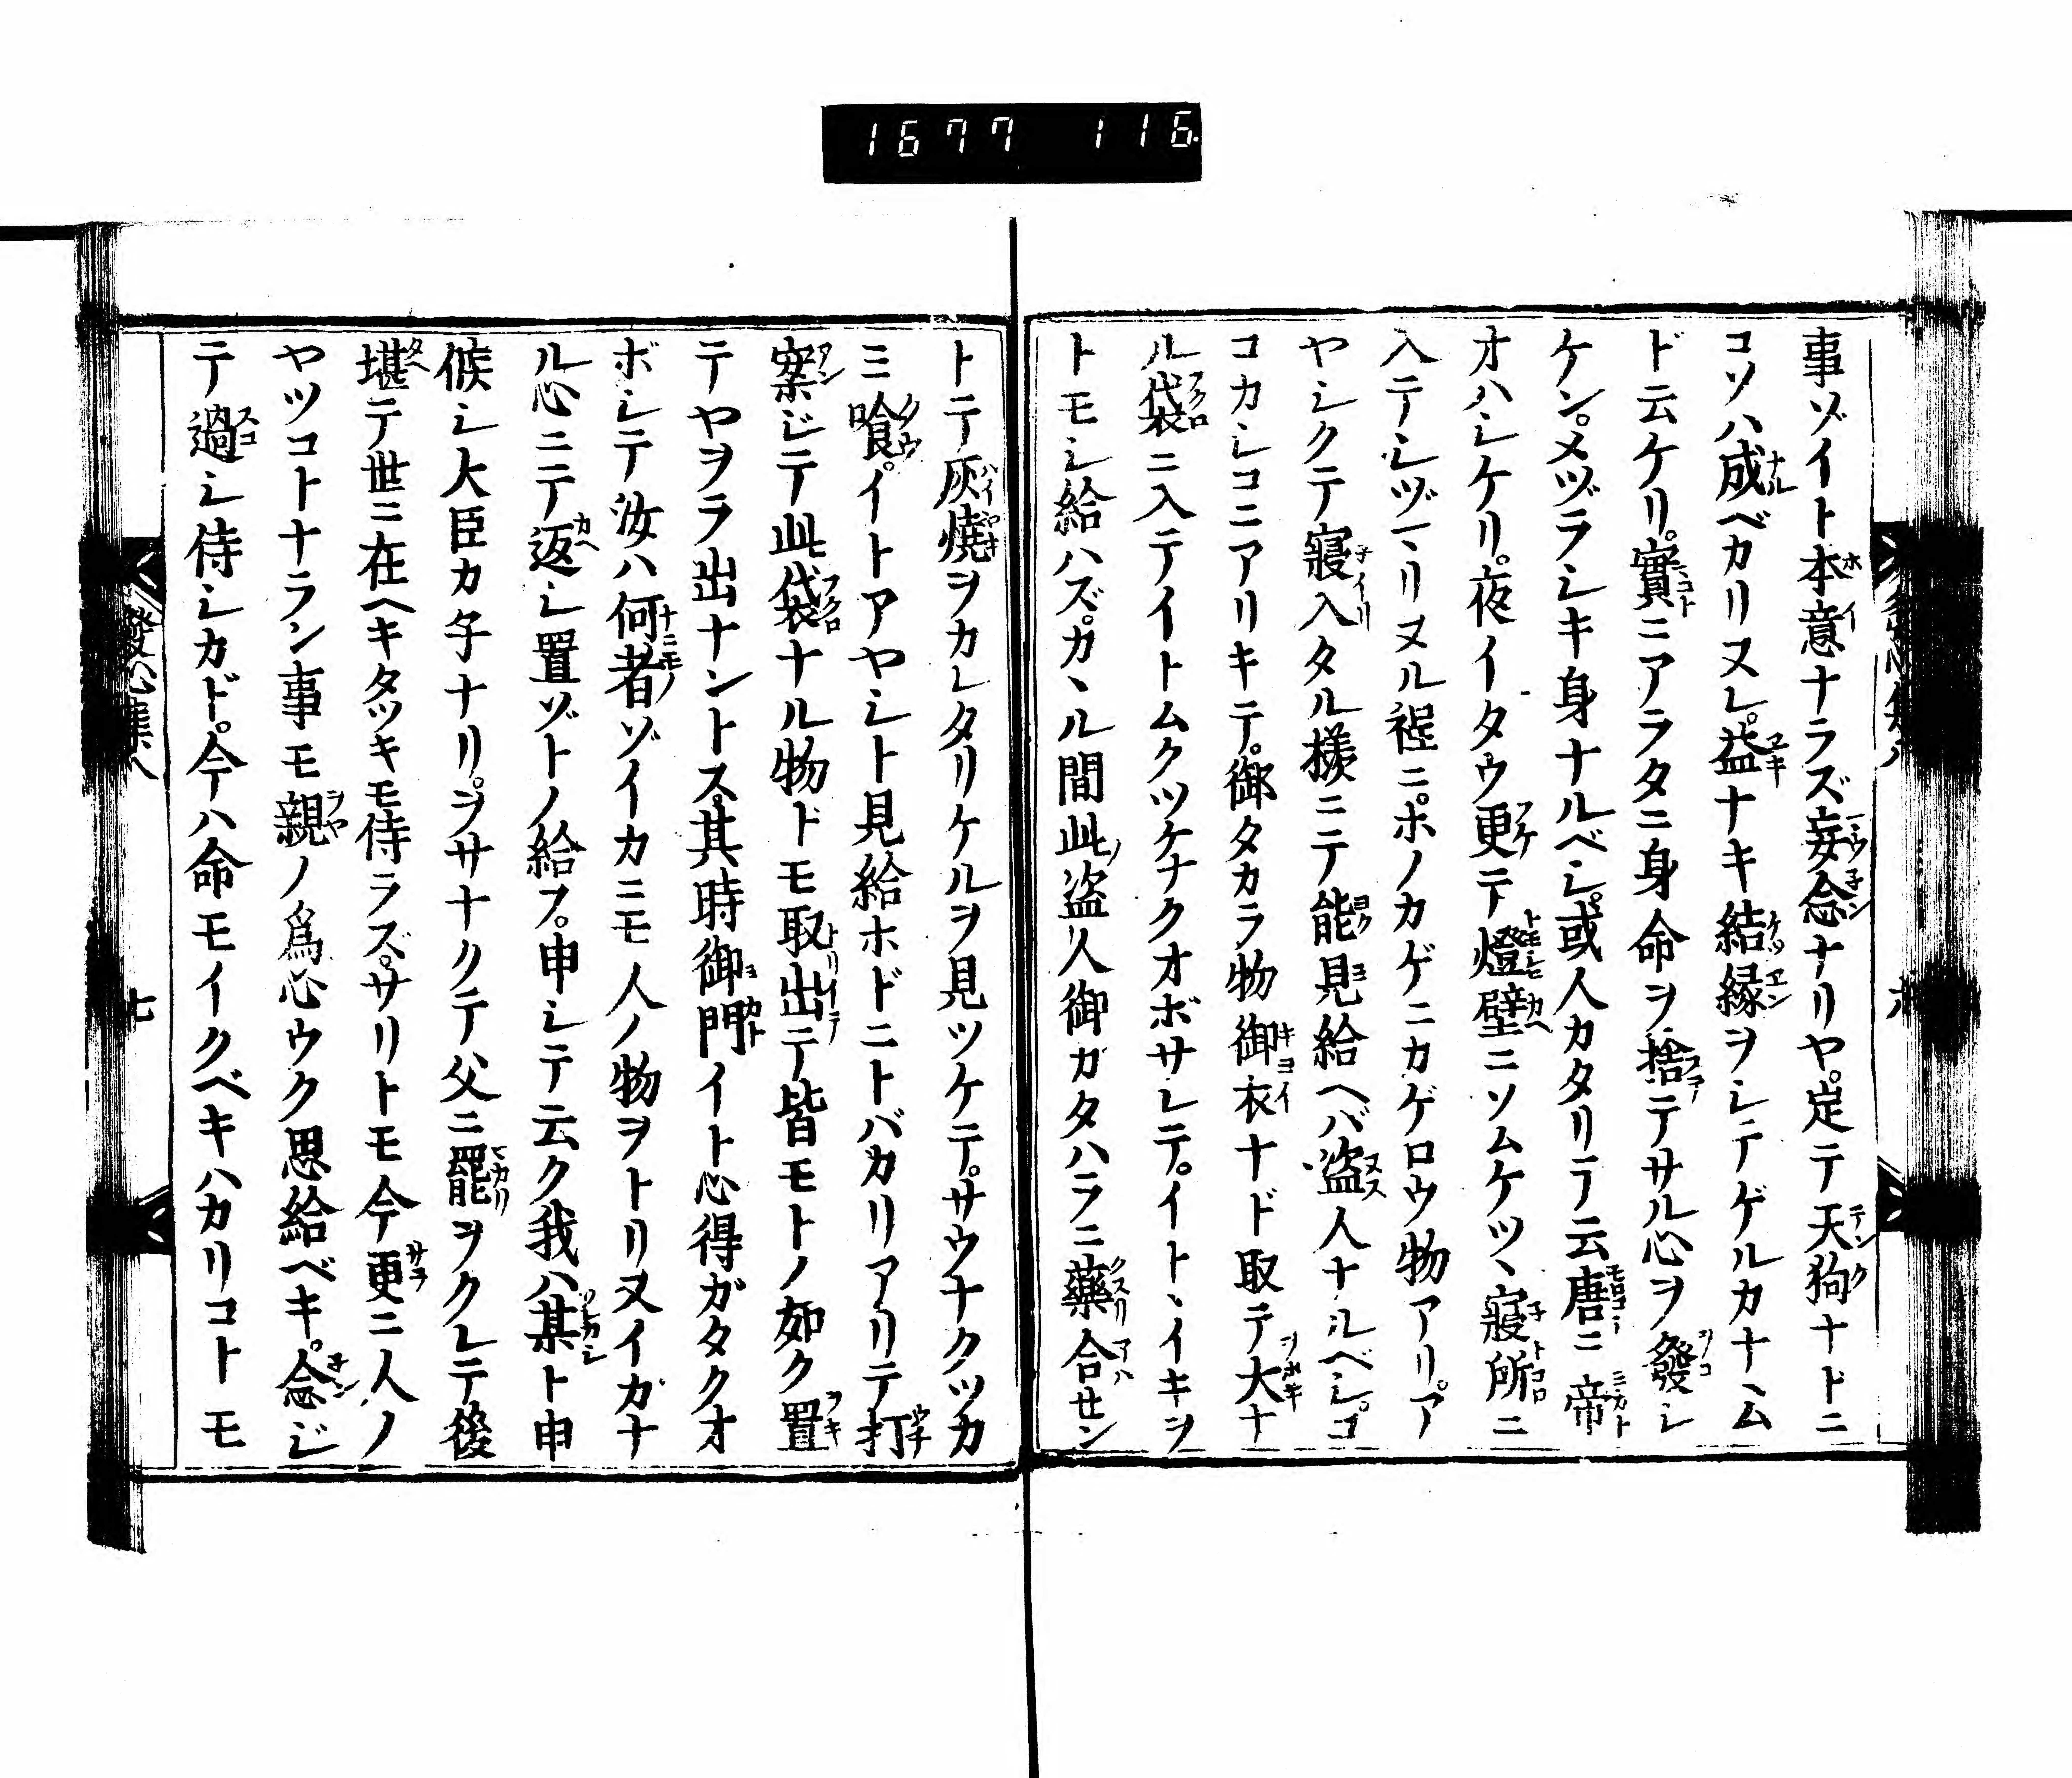 1677 116
事ゾイト本意ナラズ妄念ナリヤ。定テ天狗ナドニ
コソハ成ベカリヌレ。益ナキ結縁ヲシテゲルカナヽム
ド云ケリ。實ニアラタニ身命ヲ捨テサル心ヲ發シ
ケン。メヅラシキ身ナルベシ。或人カタリテ云唐ニ帝
オハシケリ。夜イタウ更テ燈壁ニソムケツヽ寢所ニ
入テシヅマリヌル程ニ。ホノカゲニカゲロウ物アリ。ア
ヤシクテ寢入タル様ニテ能見給ヘバ盗人ナルベシ。コ
コカシコニアリキテ。御タカラ物御衣ナド取テ大ナ
ル袋ニ入テイトムクツケナクオボサレテ。イトヽイキヲ
トモシ給ハズ。カヽル間此盗人御カタハラニ藥合セン
トテ灰燒ヲカレタリケルヲ見ツケテ。サウナクツカ
ミ喰。イトアヤシト見給ホドニトバカリアリテ打
案ジテ此袋ナル物ドモ取出テ皆モトノ如ク置
テヤヲラ出ナントス。其時御門イト心得ガタクオ
ボシテ汝ハ何者ゾイカニモ人ノ物ヲトリヌイカナ
ル心ニテ返シ置ゾトノ給フ。申シテ云ク我ハ某ト申
候シ大臣カ子ナリ。ヲサナクテ父ニ罷ヲクレテ後
堪テ世ニ在ヘキタツキモ侍ラズ。サリトモ今更ニ人ノ
ヤツコトナラン事モ親ノ爲心ウク思給ベキ。念ジ
テ過シ侍シカド。今ハ命モイクベキハカリコトモ
發心集八
七